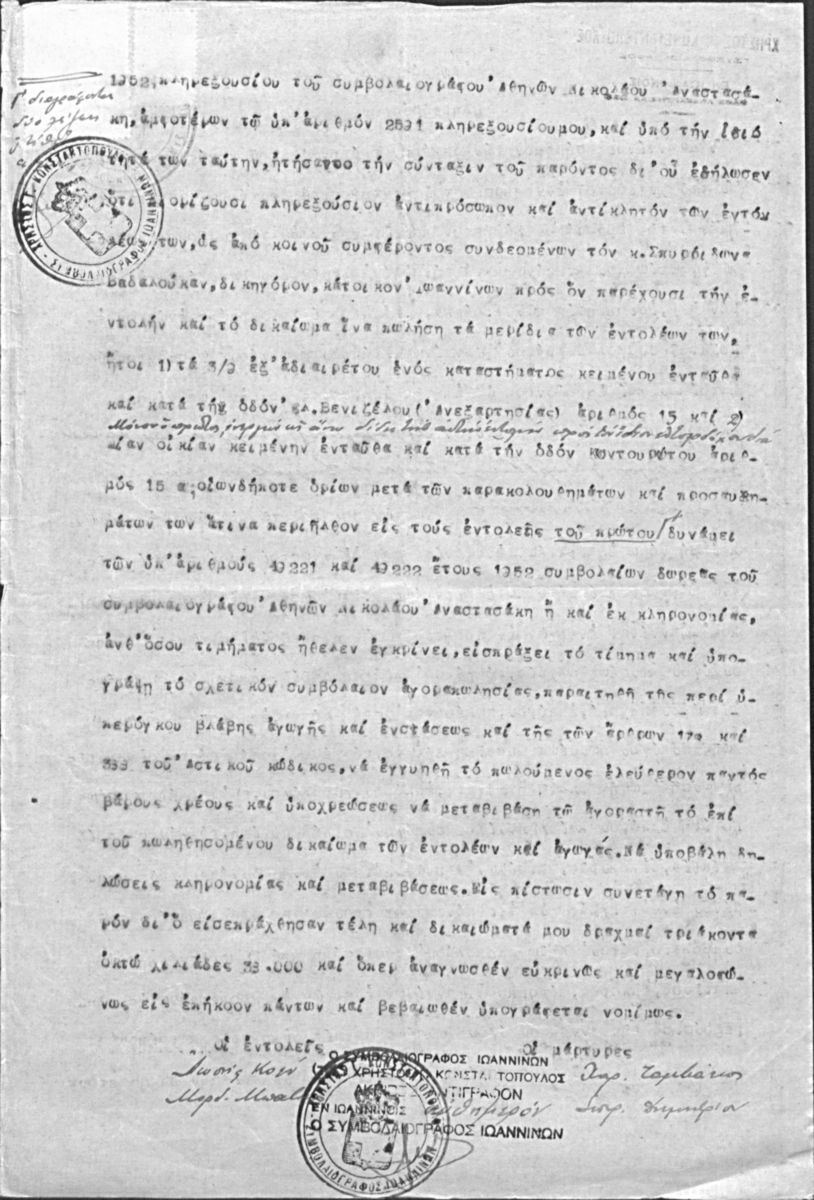 1952, πληρεξουσίου τοῦ συμβολαιογράφου Ἀθηνῶν Νικολάου Ἀναστασά-
κη, ἀμφοτέρων τῶ ὑπ' ἀριθμόν 2591 πληρεξουσίου μου, καί ὑπό τήν ἰδιό
τητά των ταύτην, ἠτήσαντο τήν σύνταξιν τοῦ παρόντος δι' οὗ ἐδήλωσαν
ὅτι διορίζουσι πληρεξούσιον ἀντιπρόσωπον καί ἀντίκλητόν των ἐντολ
έων των, ὡς ἀπό κοινοῦ συμφέροντος συνδεομένων τόν κ. Σπυρίδωνα
Βαδαλούκαν, δικηγόρον, κάτοικον Ἰωαννίνων πρός ὅν παρέχουσι τήν ἐ-
ντολήν καί τό δικαίωμα ἵνα πωλήση τά μερίδια τῶν ἐντολέων των,
ἤτοι 1) τά 3/9 ἐξ ἀδιαιρέτου ἑνός καταστήματος κειμένου ἐνταῦθα
καί κατά τήν ὁδόν Ἐλ. Βενιζέλου (Ἀνεξαρτησίας) ἀριθμός 15 καί 2)
μίαν οἰκίαν κειμένην ἐνταῦθα καί κατά τήν ὁδόν Κουντουριώτου ἀριθ-
μός 15 α, οἱωνδήποτε ὁρίων μετά τῶν παρακολουθημάτων καί προσαυξη-
μάτων των ἅτινα περιῆλθον εἰς τούς ἐντολεῖς τοῦ πρώτου/δυνάμει
τῶν ὑπ' ἀριθμούς 49221 καί 49222 ἔτους 1952 συμβολαίων δωρεᾶς τοῦ
συμβολαιογράφου Ἀθηνῶν Νικολάου Ἀναστασάκη ἤ καί ἐκ κληρονομίας,
ἀνθ' ὅσου τιμήματος ἤθελεν ἐγκρίνει, εἰσπράξει τό τίμημα καί ὑπο-
γράψη τό σχετικόν συμβόλαιον ἀγοραπωλησίας, παραιτηθῆ τῆς περί ὑ-
περόγκου βλάβης ἀγωγῆς καί ἐνστάσεως καί τῆς τῶν ἄρθρων 179 καί
388 τοῦ Ἀστικοῦ κώδικος, νά ἐγγυηθῆ τό πωλούμενος ἐλεύθερον παντός
βάρους χρέους καί ὑποχρεώσεως νά μεταβιβάση τῶ ἀγοραστῆ τό ἐπί
τοῦ πωληθησομένου δικαίωμα τῶν ἐντολέων καί ἀγωγάς. Νά ὑποβάλη δη-
λώσεις κληρονομίας καί μεταβιβάσεως. Εἰς πίστωσιν συνετάγη τό πα-
ρόν δι' ὅ εἰσεπράχθησαν τέλη καί δικαιώματά μου δραχμαί τριάκοντα
ὀκτώ χιλιάδες 38.000 καί ὅπερ ἀναγνωσθέν εὐκρινῶς καί μεγαλοφώ-
νως εἰς ἐπήκοον πάντων καί βεβαιωθέν ὑπογράφεται νομίμως.
οἱ ἐντολεῖς οἱ μάρτυρες
Ο ΣΥΜΒΟΛΑΙΟΓΡΑΦΟΣ ΙΩΑΝΝΙΝΩΝ
ΧΡΗΣΤΟΣ ΚΩΝΣΤΑΝΤΟΠΟΥΛΟΣ
ΑΚΡΙΒΕΣ ΑΝΤΙΓΡΑΦΟΝ
ΕΝ ΙΩΑΝΝΙΝΟΙΣ αὐθημερόν
Ο ΣΥΜΒΟΛΑΙΟΓΡΑΦΟΣ ΙΩΑΝΝΙΝΩΝ